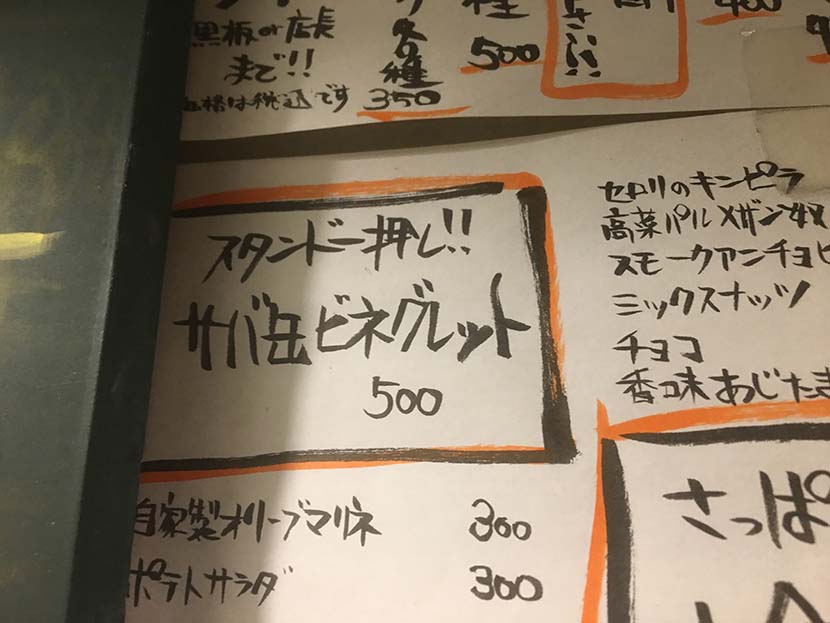 黒板or店長
まで!!
価格は税込です
各種
350
種
500
さい!!
400
スタンド一押し!!
サバ缶ビネグレット
500
自家製オリーブマリネ 300
ポテトサラダ 300
セロリのキンピラ
高菜パルメザン奴
スモークアンチョビ
ミックスナッツ
チョコ
香味あじたま
さっぱ